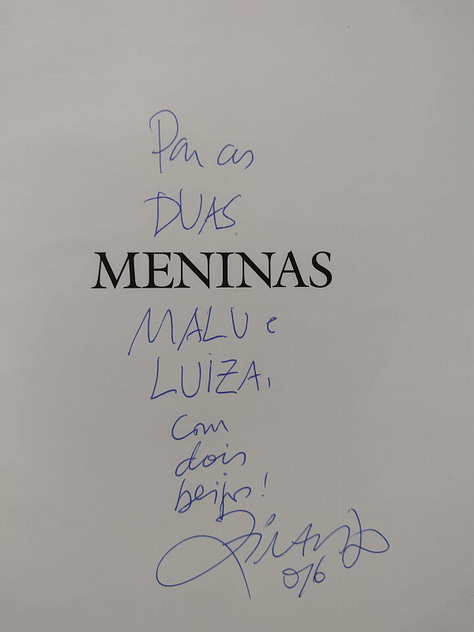 Para as
DUAS
MENINAS
MALU e
LUIZA,
com
dois
beijos!
ZIRALDO